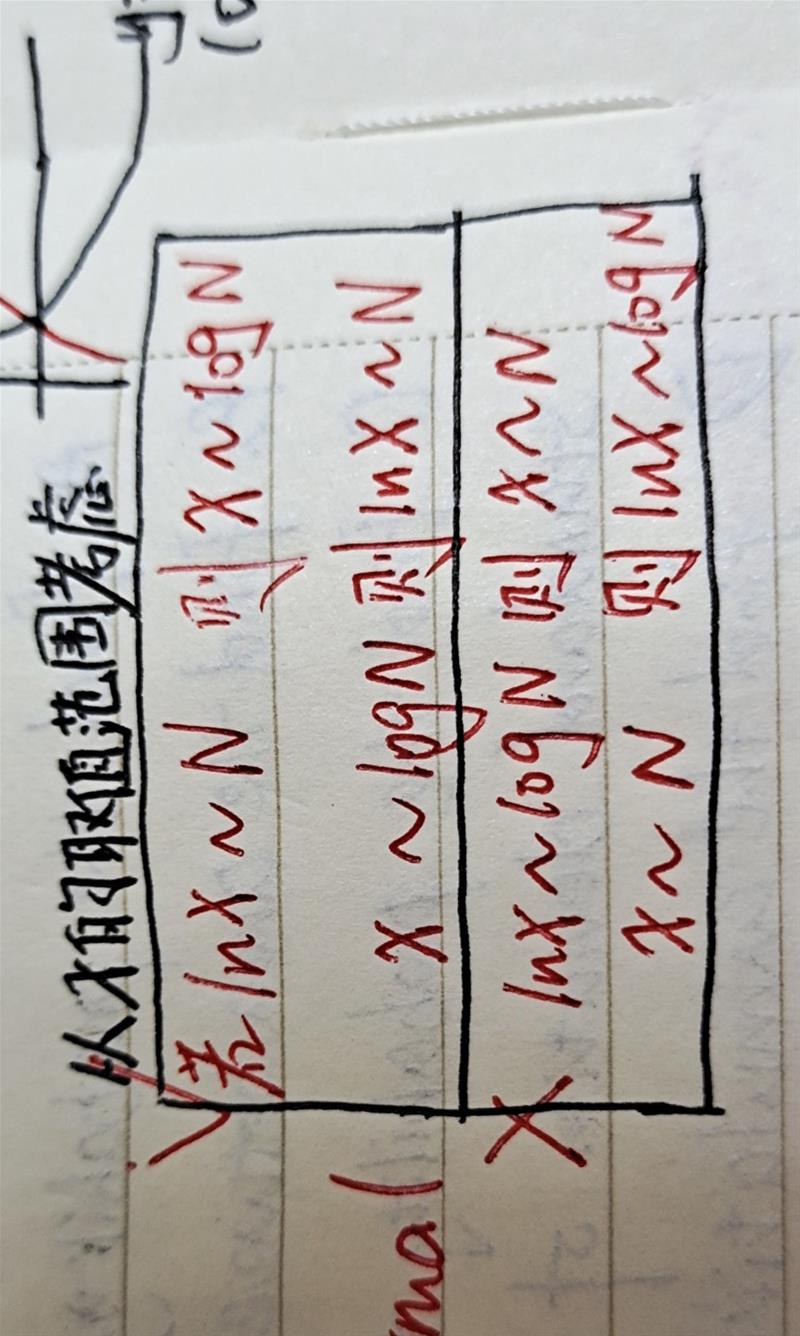 从x的取值范围考虑
✓ 若 lnx ~ N 则 x ~ log N
x ~ log N 则 lnx ~ N
× lnx ~ log N 则 x ~ N
x ~ N 则 lnx ~ log N
mal